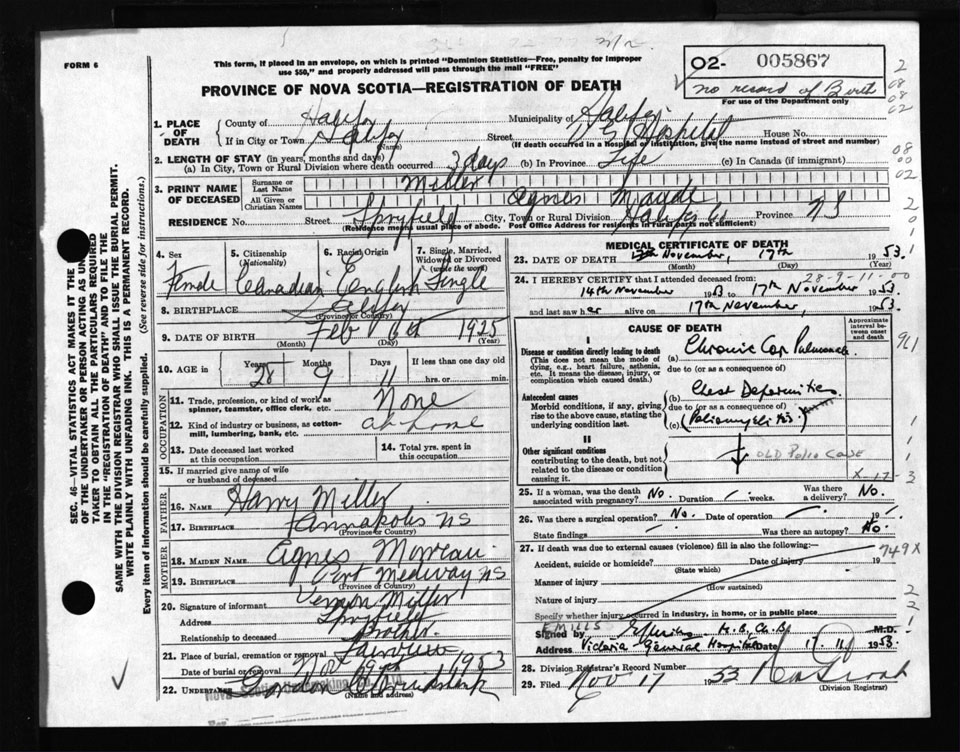 FORM 6
This form, if placed in an envelope, on which is printed "Dominion Statistics—Free, penalty for improper
use $50," and properly addressed will pass through the mail "FREE"
PROVINCE OF NOVA SCOTIA—REGISTRATION OF DEATH
O2- 005867
no record of Birth
For use of the Department only
2
08
08
02
1. PLACE OF DEATH
County of Halifax Municipality of Halifax
If in City or Town Halifax Street V G Hospital House No.
(Name) (If death occurred in a hospital or institution, give the name instead of street and number)
2. LENGTH OF STAY (in years, months and days)
(a) In City, Town or Rural Division where death occurred 3 days (b) In Province Life (c) In Canada (if immigrant)
08
00
02
3. PRINT NAME OF DECEASED
Surname or Last Name Miller
All Given or Christian Names Agnes Maude
RESIDENCE No. Street Spryfield City, Town or Rural Division Halifax Co Province NS
(Residence means usual place of abode. Post Office Address for residents in Rural parts not sufficient)
4. Sex Female
5. Citizenship (Nationality) Canadian
6. Racial Origin English
7. Single, Married, Widowed or Divorced (write the word) Single
8. BIRTHPLACE
(Province or Country)
9. DATE OF BIRTH Feb 1925
(Month) (Day) (Year)
10. AGE in Years 28 Months 9 Days 11 If less than one day old
hrs. or min.
OCCUPATION
11. Trade, profession, or kind of work as
spinner, teamster, office clerk, etc. None
12. Kind of industry or business, as cotton-
mill, lumbering, bank, etc. at home
13. Date deceased last worked
at this occupation
14. Total yrs. spent in
this occupation
15. If married give name of wife
or husband of deceased
FATHER
16. NAME Harry Miller
17. BIRTHPLACE Annapolis NS
(Province or Country)
MOTHER
18. MAIDEN NAME Agnes
19. BIRTHPLACE Port Medway NS
(Province or Country)
20. Signature of informant Vernon Miller
Address Spryfield
Relationship to deceased Brother
21. Place of burial, cremation or removal Fairview
Date of burial or removal Nov 19th 1953
22. UNDERTAKER Gordon
(Name and address)
MEDICAL CERTIFICATE OF DEATH
23. DATE OF DEATH November, 17th 1953.
(Month) (Day) (Year)
28-9-11-00
24. I HEREBY CERTIFY that I attended deceased from:
14th November 1953 to 17th November 1953.
and last saw her alive on 17th November, 1953.
CAUSE OF DEATH
Approximate interval between onset and death
I
Disease or condition directly leading to death
(This does not mean the mode of
dying, e.g., heart failure, asthenia,
etc. It means the disease, injury, or
complication which caused death.)
(a) Chronic Cor Pulmonale
due to (or as a consequence of)
Antecedent causes
Morbid conditions, if any, giving
rise to the above cause, stating the
underlying condition last.
(b) Chest Deformities
due to (or as a consequence of)
(c) Poliomyelitis
II
Other significant conditions
contributing to the death, but not
related to the disease or condition
causing it.
OLD Polio CASE
X-17-3
25. If a woman, was the death
associated with pregnancy? No. Duration weeks. Was there a delivery? No.
26. Was there a surgical operation? No. Date of operation 19
State findings Was there an autopsy? No.
27. If death was due to external causes (violence) fill in also the following:— 749X
Accident, suicide or homicide? Date of injury 19
(State which)
Manner of injury
(How sustained)
Nature of injury
Specify whether injury occurred in industry, in home, or in public place
E MILLS
Signed by M.B., Ch.B. M.D.
Address Victoria General Hospital Date 17 11 1953
28. Division Registrar's Record Number
29. Filed Nov 17 1953
(Division Registrar)
SEC. 46—VITAL STATISTICS ACT MAKES IT THE DUTY
OF THE UNDERTAKER OR PERSON ACTING AS UNDER-
TAKER TO OBTAIN ALL THE PARTICULARS REQUIRED
IN THE "REGISTRATION OF DEATH" AND TO FILE THE
SAME WITH THE DIVISION REGISTRAR WHO SHALL ISSUE THE BURIAL PERMIT.
WRITE PLAINLY WITH UNFADING INK. THIS IS A PERMANENT RECORD.
Every item of information should be carefully supplied. (See reverse side for instructions.)